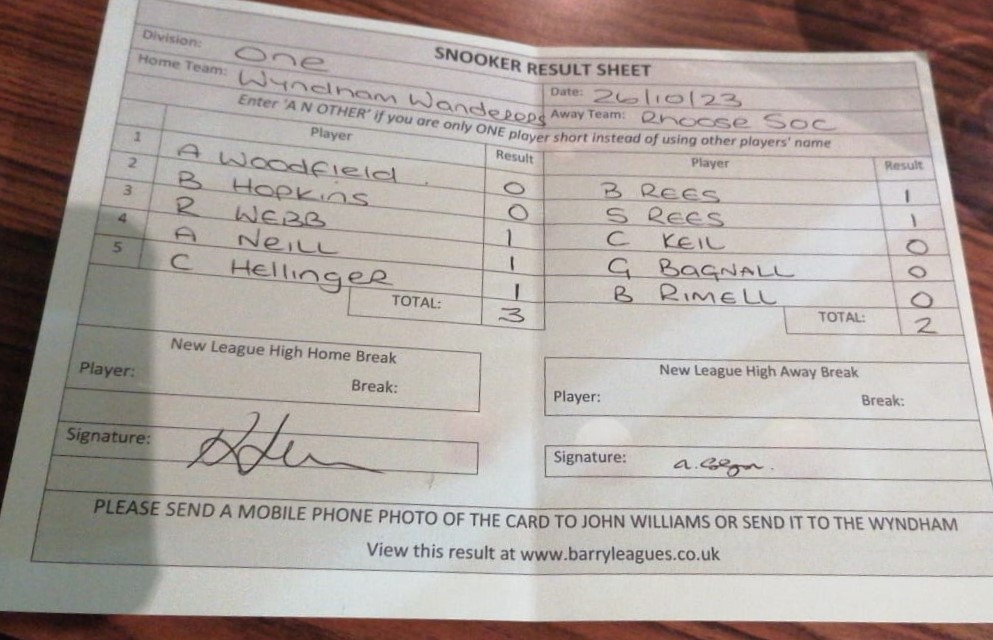 SNOOKER RESULT SHEET
Division: One
Home Team: Wyndham Wanderers
Date: 26/10/23
Away Team: Rhoose Soc
Enter 'A N OTHER' if you are only ONE player short instead of using other players' name
Player Result Player Result
1 A Woodfield 0 B REES 1
2 B Hopkins 0 S REES 1
3 R WEBB 1 C KEIL 0
4 A NEILL 1 G BAGNALL 0
5 C Hellinger 1 B RIMELL 0
TOTAL: 3 TOTAL: 2
New League High Home Break
Player: Break:
New League High Away Break
Player: Break:
Signature:
Signature:
PLEASE SEND A MOBILE PHONE PHOTO OF THE CARD TO JOHN WILLIAMS OR SEND IT TO THE WYNDHAM
View this result at www.barryleagues.co.uk